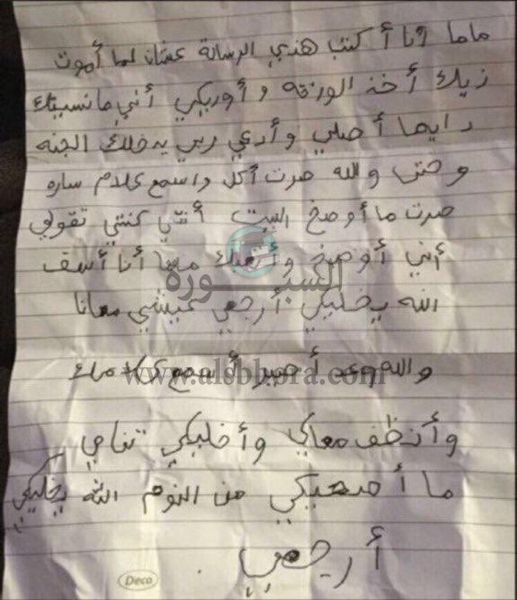 ماما أنا أكتب هذي الرسالة عشان لما أموت
زيك أخذ الورقه وأوريكي أني ما نسيتك
دايما أصلي وأدعي ربي يدخلك الجنه
وحتى والله صرت أكل واسمع كلام ساره
صرت ما أوصخ البيت أنتي كنتي تقولي
أني أوصخ وأتعبك ماما أنا أسف
الله يخليكي أرجعي عيشي معانا
والله وعد أصير أسمع كلامك
وأنظف معاكي وأخليكي تنامي
ما أصحيكي من النوم الله يخليكي
أرجعي
السبورة
www.alsbbora.com
Deco